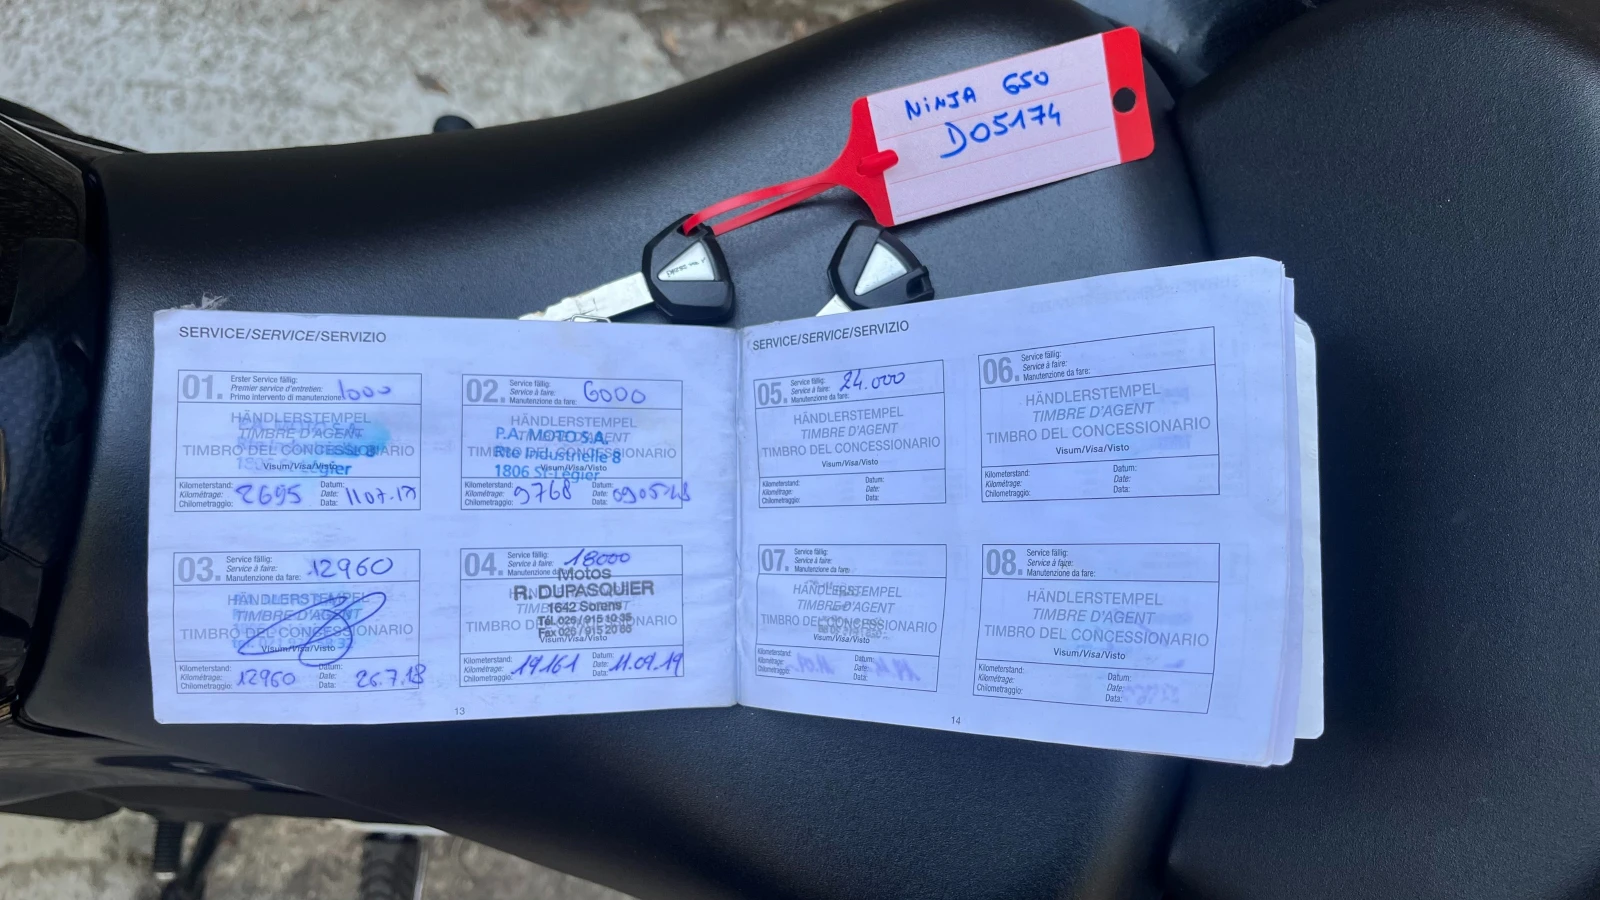 NINJA 650
D05174
SERVICE/SERVICE/SERVIZIO
01. Erster Service fällig:
Premier service d'entretien: 1000
Primo intervento di manutenzione
HÄNDLERSTEMPEL
TIMBRE D'AGENT
TIMBRO DEL CONCESSIONARIO
Visum/Visa/Visto
Kilometerstand: Datum:
Kilométrage: 2695 Date: 11 07.17
Chilometraggio: Data:
02. Service fällig:
Service à faire: 6000
Manutenzione da fare:
HÄNDLERSTEMPEL
TIMBRE D'AGENT
P.A. MOTO S.A.
TIMBRO DEL CONCESSIONARIO
Rte Industrielle 8
Visum/Visa/Visto
1806 St-Légier
Kilometerstand: Datum:
Kilométrage: 9768 Date: 090518
Chilometraggio: Data:
03. Service fällig:
Service à faire: 12960
Manutenzione da fare:
HÄNDLERSTEMPEL
TIMBRE D'AGENT
TIMBRO DEL CONCESSIONARIO
Visum/Visa/Visto
Kilometerstand: Datum:
Kilométrage: 12960 Date: 26.7.18
Chilometraggio: Data:
04. Service fällig: 18000
Service à faire:
Manutenzione da fare:
Motos
R. DUPASQUIER
1642 Sorens
Tél. 026 / 915 10 35
Fax 026 / 915 20 66
Visum/Visa/Visto
Kilometerstand: Datum:
Kilométrage: 19161 Date: 11.09.19
Chilometraggio: Data:
13
SERVICE/SERVICE/SERVIZIO
05. Service fällig:
Service à faire: 24.000
Manutenzione da fare:
HÄNDLERSTEMPEL
TIMBRE D'AGENT
TIMBRO DEL CONCESSIONARIO
Visum/Visa/Visto
Kilometerstand: Datum:
Kilométrage: Date:
Chilometraggio: Data:
06. Service fällig:
Service à faire:
Manutenzione da fare:
HÄNDLERSTEMPEL
TIMBRE D'AGENT
TIMBRO DEL CONCESSIONARIO
Visum/Visa/Visto
Kilometerstand: Datum:
Kilométrage: Date:
Chilometraggio: Data:
07. Service fällig:
Service à faire:
Manutenzione da fare:
HÄNDLERSTEMPEL
TIMBRE D'AGENT
TIMBRO DEL CONCESSIONARIO
Visum/Visa/Visto
Kilometerstand: Datum:
Kilométrage: Date:
Chilometraggio: Data:
08. Service fällig:
Service à faire:
Manutenzione da fare:
HÄNDLERSTEMPEL
TIMBRE D'AGENT
TIMBRO DEL CONCESSIONARIO
Visum/Visa/Visto
Kilometerstand: Datum:
Kilométrage: Date:
Chilometraggio: Data:
14